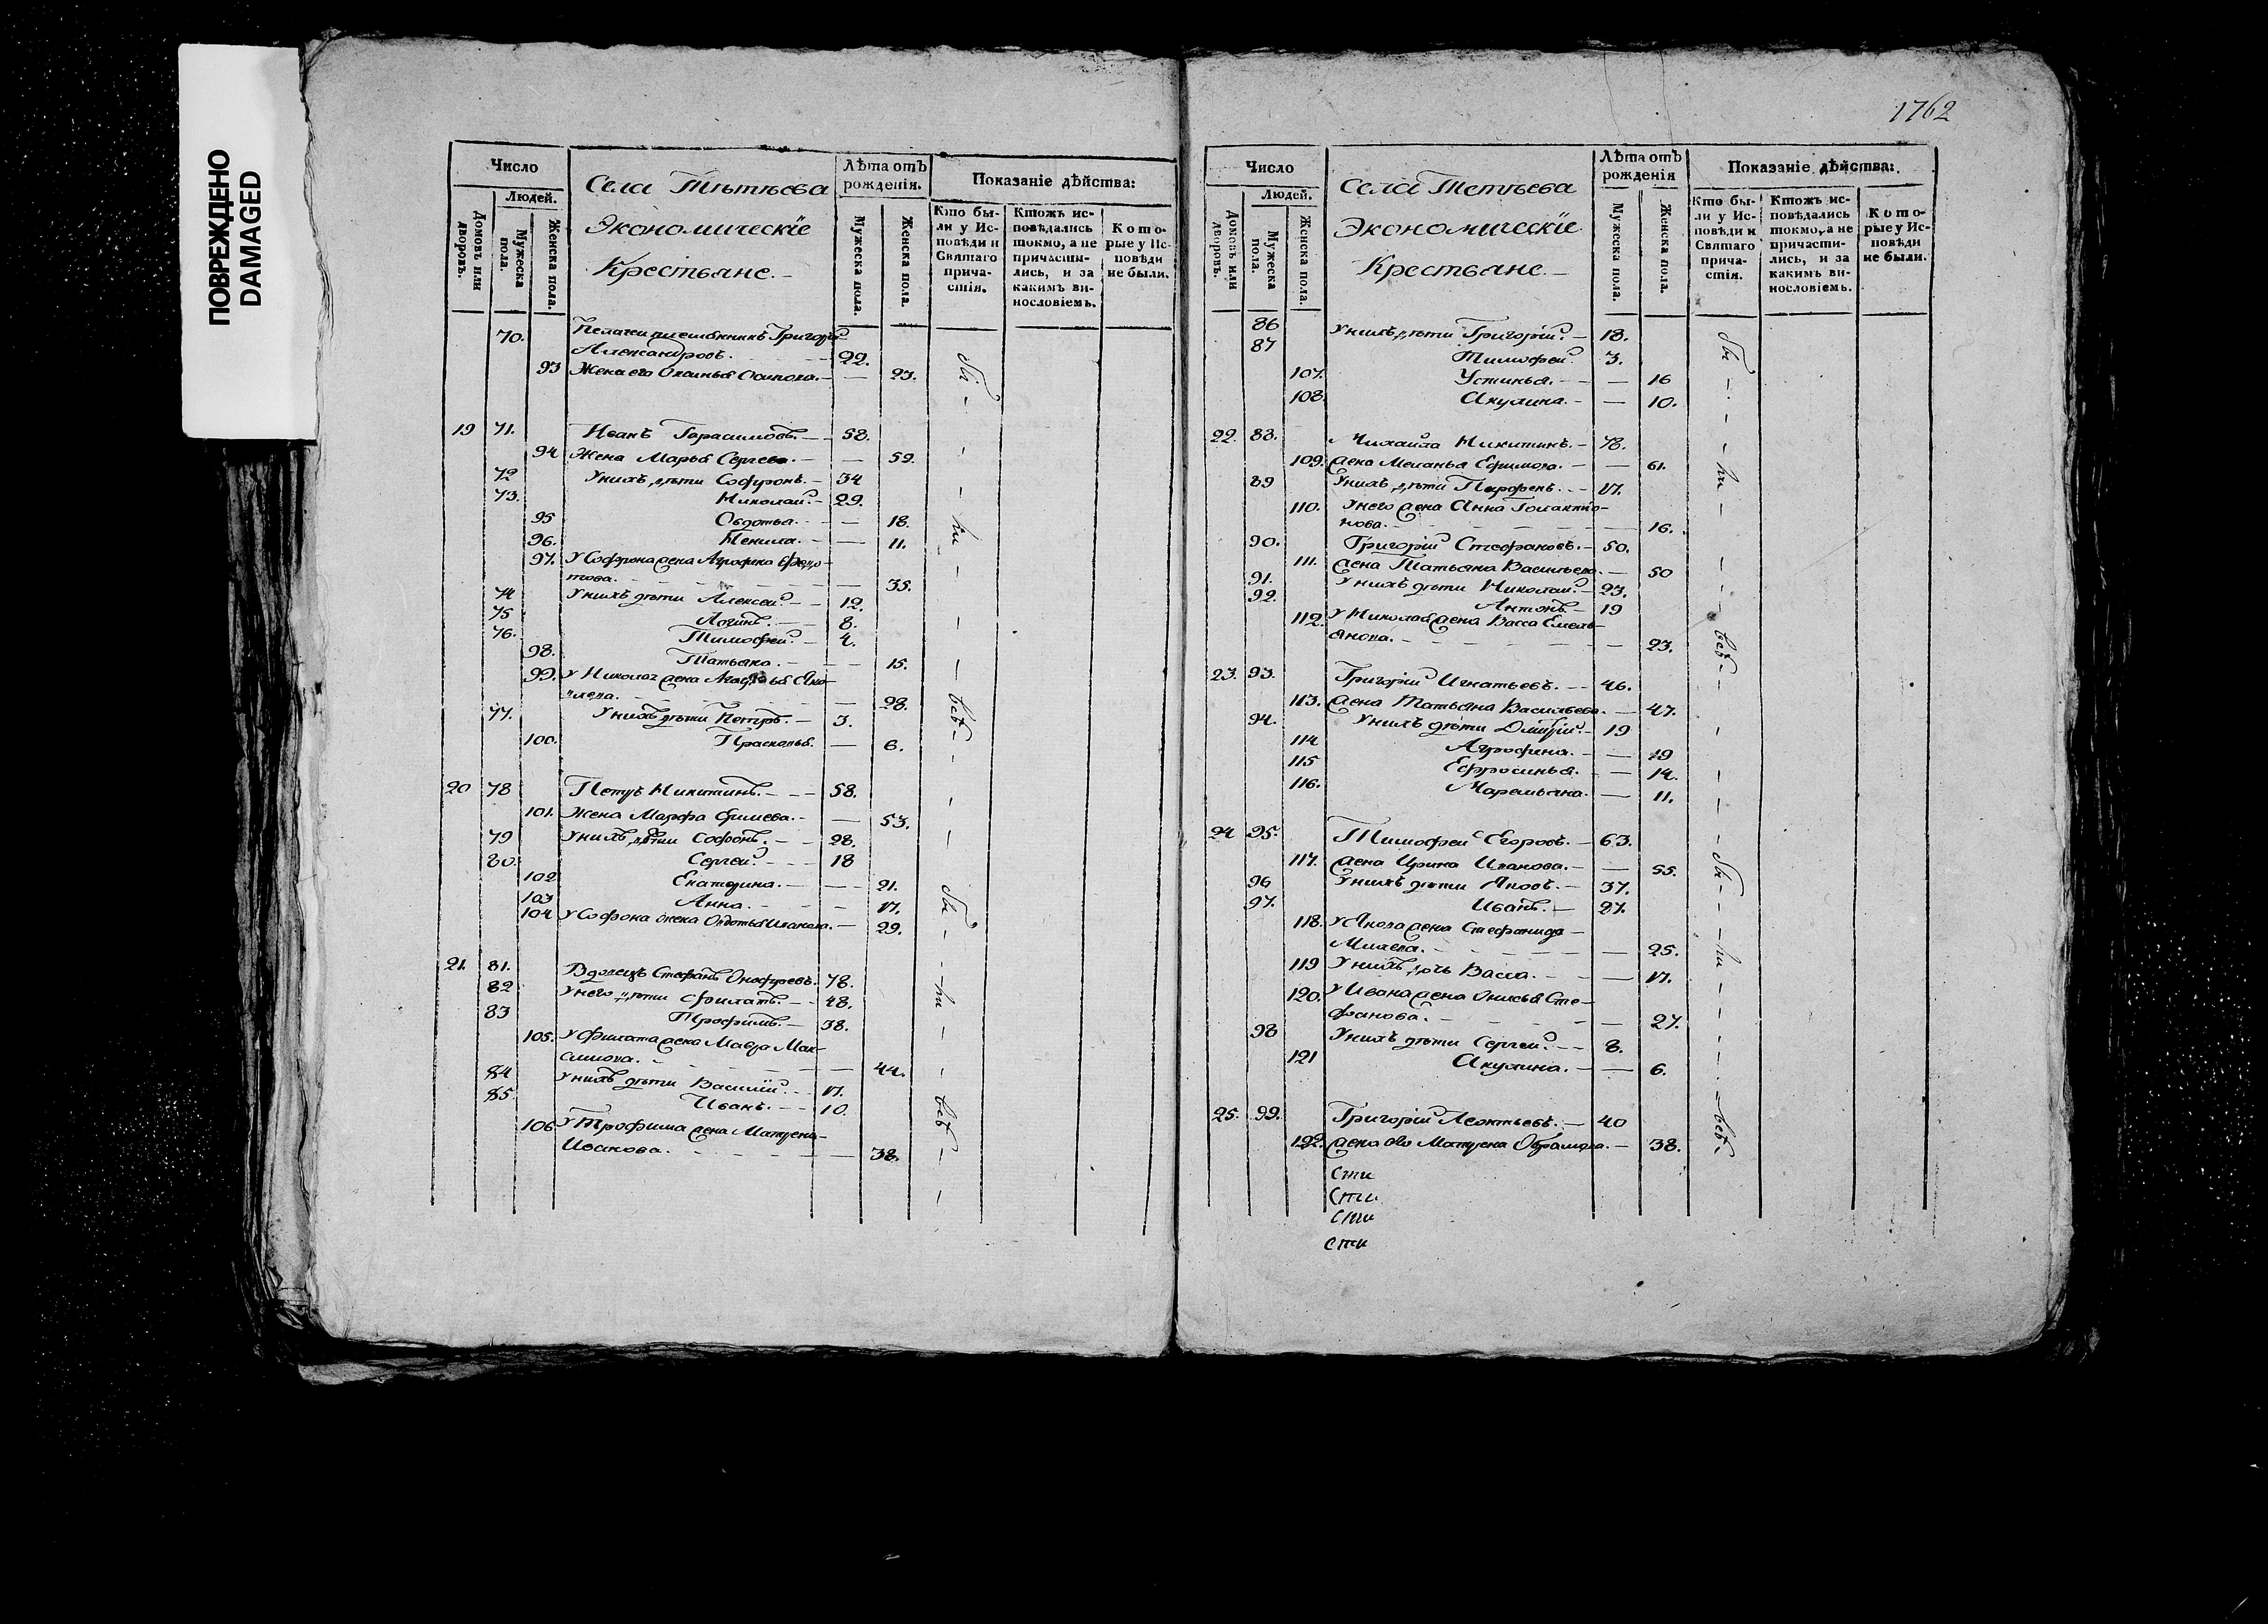 ПОВРЕЖДЕНО
DAMAGED
1762
Число
Людей.
Домовъ или дворовъ.
Мужеска пола.
Женска пола.
Села
Экономическїе
Крестьяне.
Лѣта отъ рожденїя.
Мужеска пола.
Женска пола.
Показанїе дѣйства:
Кто бы-
ли у Ис-
повѣди и
Святаго
прича-
стїя.
Ктожъ ис-
повѣдались
токмо, а не
причасти-
лись, и за
какимъ ви-
нословїемъ.
Кото-
рые у Ис-
повѣди
не были.
70. племянникъ Григорей
Александровъ. 22.
93 Жена его Осипова. — 23.
19 71. Иванъ Гарасимовъ. 58.
94 Жена Марья Сергева. — 59.
72 У нихъ дѣти Софронъ. 34
73. Николай. 29.
95 Овдотья. — 18.
96. — 11.
97. У Софрона жена Агрофена Ѳедо-
това. — 35.
74 У нихъ дѣти Алексей. 12.
75 Логинъ. 8.
76. Тимофей. 4.
98. Татьяна. — 15.
99. У Николая жена Агафья Яко-
влева. — 28.
77. У нихъ дѣти Петръ. 3.
100. Прасковья. — 6.
20 78 Петръ Никитинъ. 58.
101. Жена Марфа — 53.
79 У нихъ дѣти Софонъ. 28.
80. Сергей. 18
102 Екатерина. — 21.
103 Анна. — 17.
104 У Софона жена Овдотья Иванова. — 29.
21. 81. Вдовецъ Стефанъ Онофреевъ. 78.
82 У него дѣти Филатъ. 48.
83 Трофимъ. 38.
105. У Филата жена Мавра Мак-
симова. — 44.
84 У нихъ дѣти Василїй. 17.
85. Иванъ. 10.
106 У Трофима жена Матрена
Иванова. — 38.
бы — — — ли — — — всѣ — — — бы — — ли — — всѣ — —
Число
Людей.
Домовъ или дворовъ.
Мужеска пола.
Женска пола.
Села Тетѣева
Экономическїе
Крестьяне.
Лѣта отъ рожденїя
Мужеска пола.
Женска пола.
Показанїе дѣйства:
Кто бы-
ли у Ис-
повѣди и
Святаго
прича-
стїя.
Ктожъ ис-
повѣдались
токмо, а не
причасти-
лись, и за
какимъ ви-
нословїемъ.
Кото-
рые у Ис-
повѣди
не были.
86 У нихъ дѣти Григорїй. 18.
87 Тимофей. 3.
107. Устинья. — 16
108. Акулина. — 10.
22. 88. Михайла Никитинъ. 78.
109. жена Меланья Ефимова. — 61.
89 У нихъ дѣти Парфенъ. 17.
110. У него жена Анна Галактїо-
нова. — 16.
90. Григорїй Стефановъ. 50.
111. жена Татьяна Васильева. — 50
91. У нихъ дѣти Николай. 23.
92. Антонъ. 19
112. У Николая жена Васса Емель-
янова. — 23.
23. 93. Григорїй Игнатьевъ. 46.
113. жена Татьяна Васильева. — 47.
94. У нихъ дѣти Дмитрїй. 19
114 Агрофена. — 19
115 Ефросинья. — 14.
116. Маремьяна. — 11.
24 95. Тимофей Егоровъ. 63.
117. жена Ирина Иванова. — 55.
96 У нихъ дѣти Яковъ. 37.
97. Иванъ. 27.
118. У Якова жена Стефанида
— 25.
119 У нихъ дочь Васса. — 17.
120. У Ивана жена Онисья Сте-
фанова. — 27.
98 У нихъ дѣти Сергей. 8.
121 Акулина. — 6.
25. 99. Григорїй Леонтьевъ. 40
122. жена ево Матрена Обрамова. — 38.
бы — — — ли — — — всѣ — — — — бы — — ли — — — всѣ.